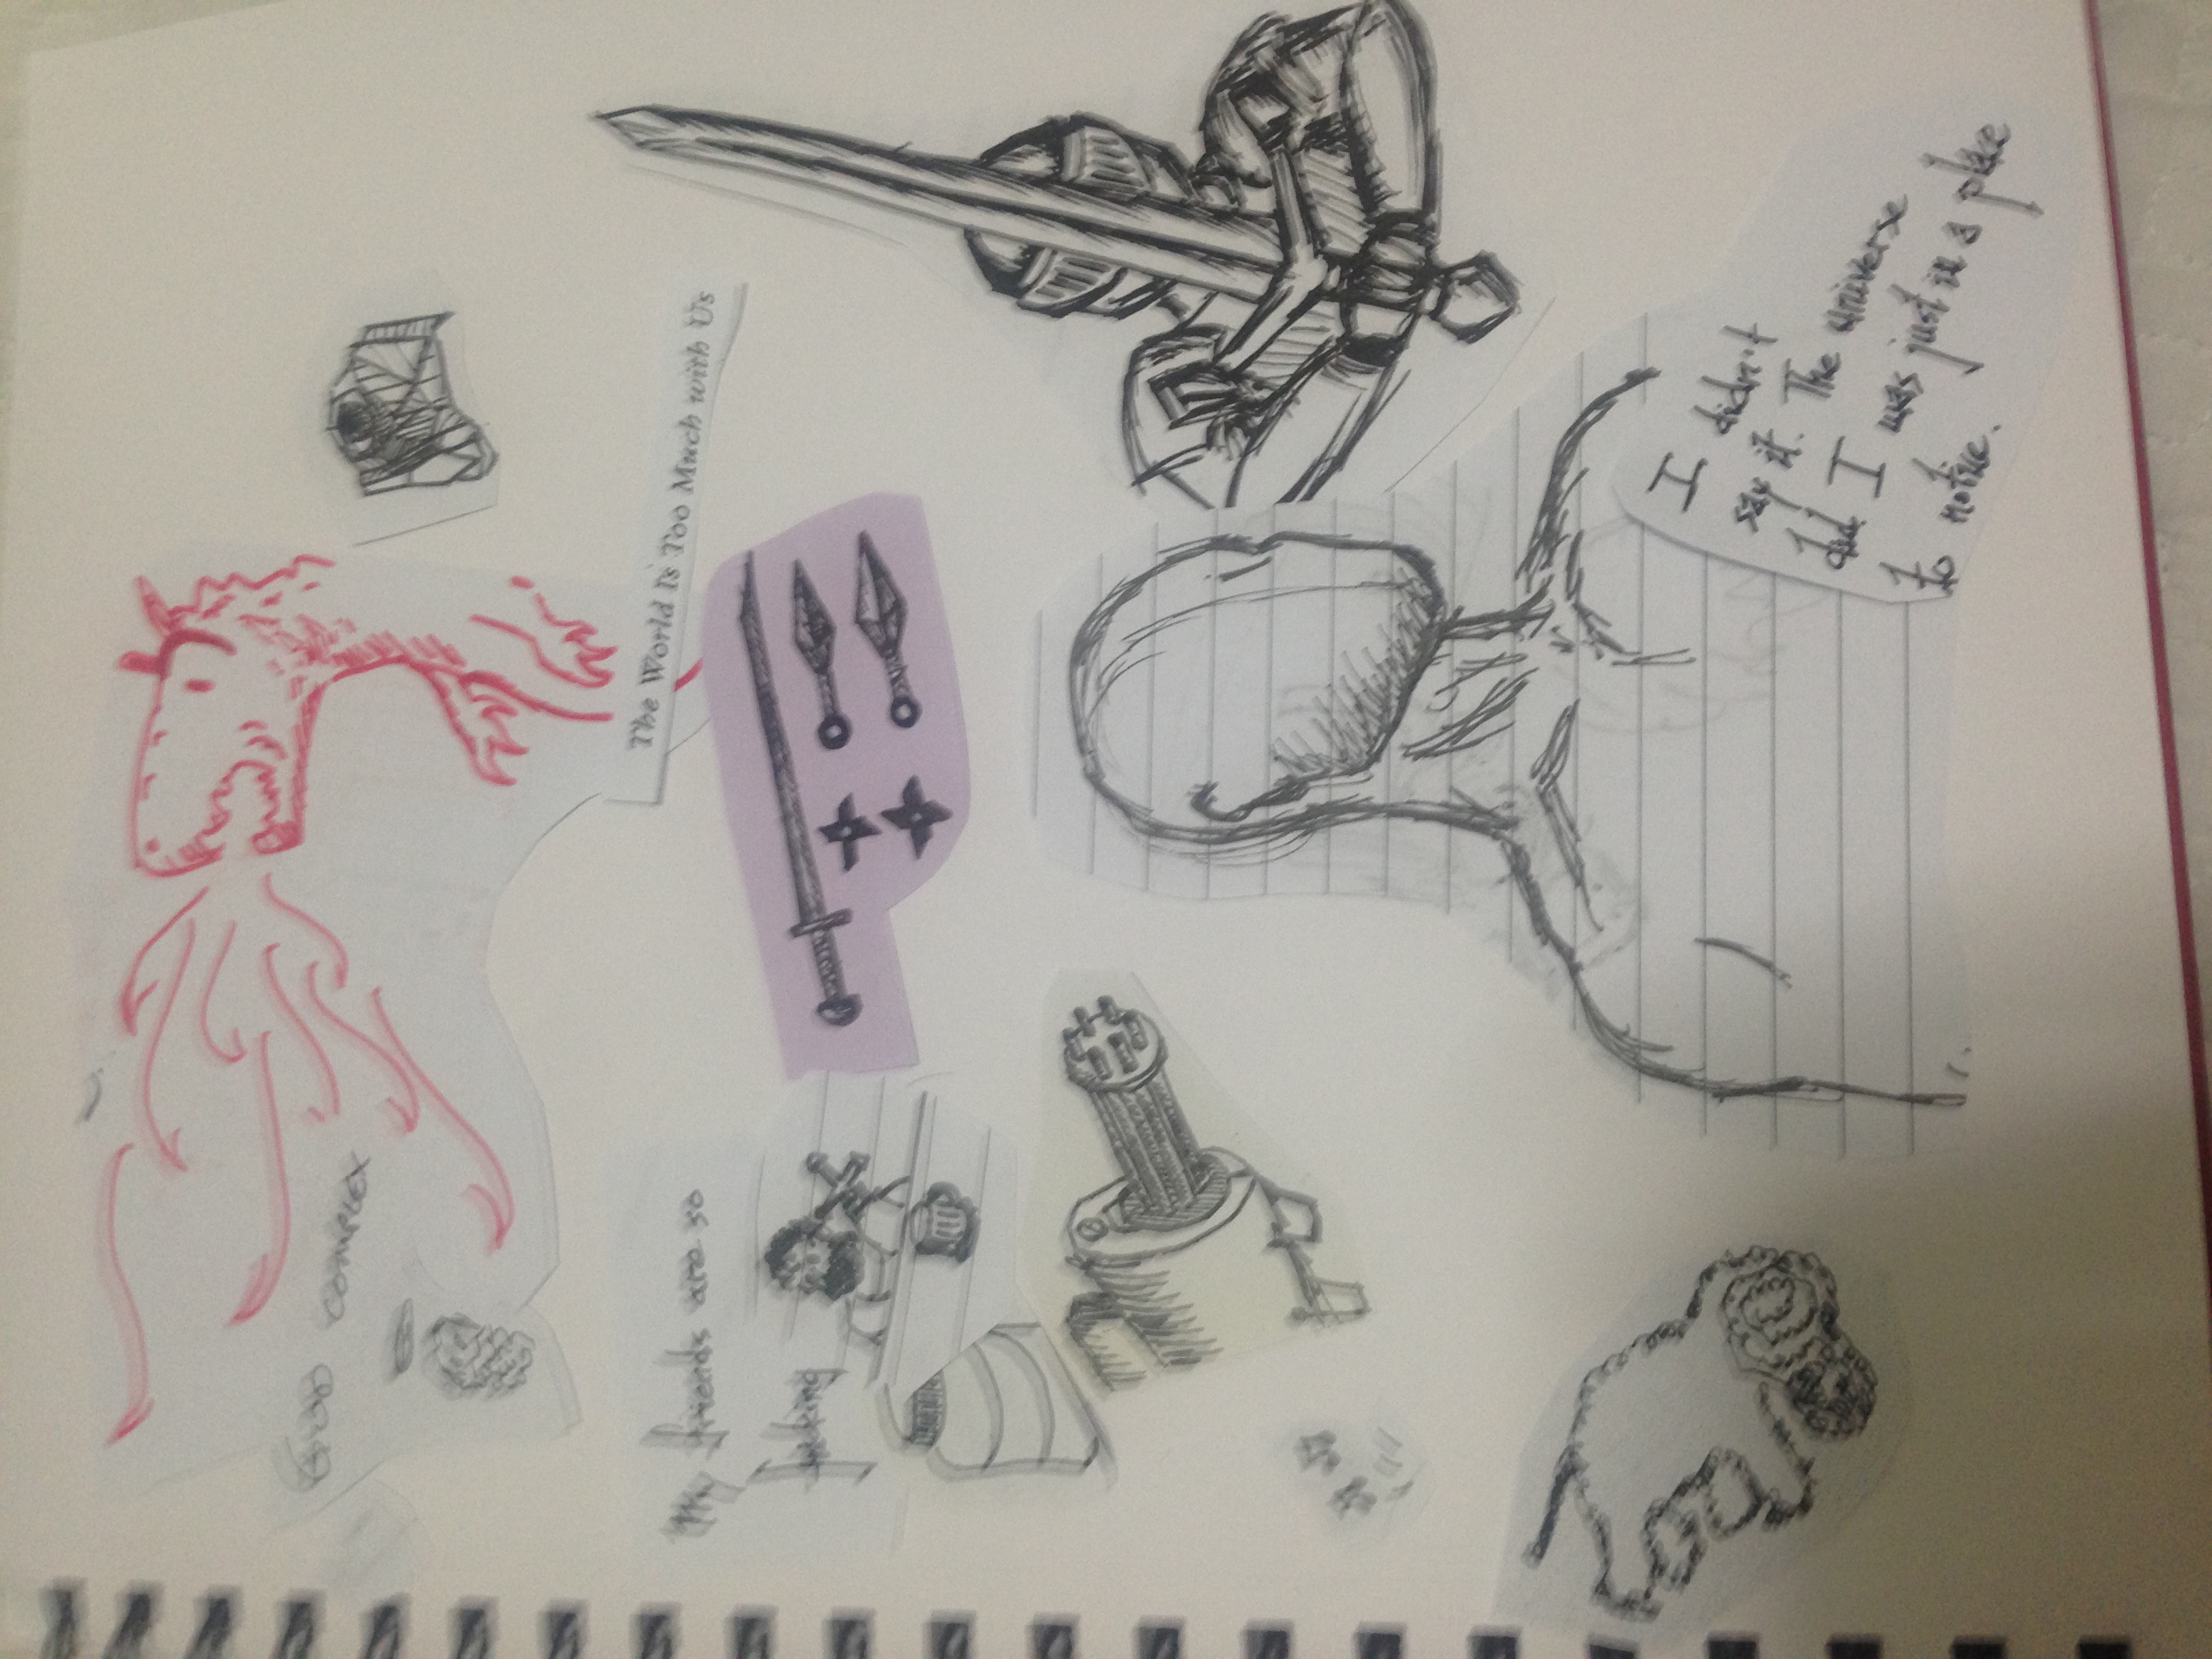 God complex
The World Is Too Much with Us
My friends are so
fricking
I didn't
say it. The universe
did. I was just in a place
to notice.